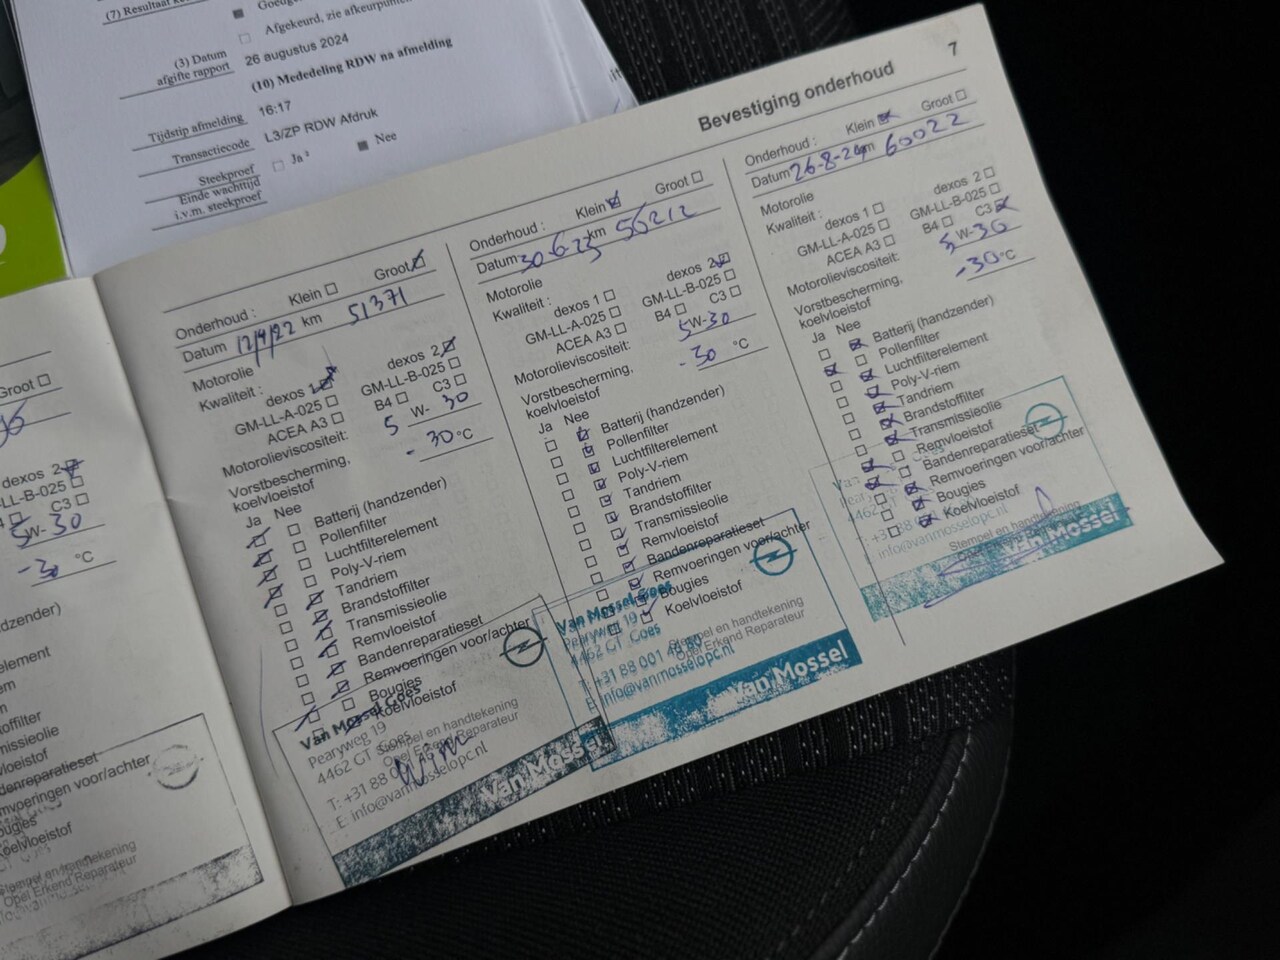 (7) Resultaat
Goedge
Afgekeurd, zie afkeurpunten
(3) Datum
afgifte rapport
26 augustus 2024
(10) Mededeling RDW na afmelding
Tijdstip afmelding
16:17
Transactiecode
L3/ZP RDW Afdruk
Steekproef
Ja ²
Nee
Einde wachttijd
i.v.m. steekproef
Groot
dexos 2
LL-B-025
C3
5W-30
-30 °C
dzender)
element
em
offilter
missieolie
vloeistof
denreparatieset
mvoeringen voor/achter
ougies
Koelvloeistof
Stempel en handtekening
Opel Erkend Reparateur
7
Bevestiging onderhoud
Onderhoud : Klein Groot
Datum 12/9/22 km 51371
Motorolie
Kwaliteit : dexos 1 dexos 2
GM-LL-A-025 GM-LL-B-025
ACEA A3 B4 C3
Motorolieviscositeit: 5 W- 30
Vorstbescherming,
koelvloeistof - 30 °C
Ja Nee
Batterij (handzender)
Pollenfilter
Luchtfilterelement
Poly-V-riem
Tandriem
Brandstoffilter
Transmissieolie
Remvloeistof
Bandenreparatieset
Remvoeringen voor/achter
Bougies
Koelvloeistof
Stempel en handtekening
Opel Erkend Reparateur
Van Mossel Goes
Pearyweg 19
4462 GT Goes
T: +31 88 0
E: info@vanmosselopc.nl
Wim
Van Mossel
Onderhoud : Klein Groot
Datum 30-6-23 km 56212
Motorolie
Kwaliteit : dexos 1 dexos 2
GM-LL-A-025 GM-LL-B-025
ACEA A3 B4 C3
Motorolieviscositeit: 5W-30
Vorstbescherming,
koelvloeistof -30 °C
Ja Nee
Batterij (handzender)
Pollenfilter
Luchtfilterelement
Poly-V-riem
Tandriem
Brandstoffilter
Transmissieolie
Remvloeistof
Bandenreparatieset
Remvoeringen voor/achter
Bougies
Koelvloeistof
Stempel en handtekening
Opel Erkend Reparateur
Van Mossel Goes
Pearyweg 19
4462 GT Goes
+31 88 001 48 80
info@vanmosselopc.nl
Van Mossel
Onderhoud : Klein Groot
Datum 26-8-24 km 60022
Motorolie
Kwaliteit : dexos 1 dexos 2
GM-LL-A-025 GM-LL-B-025
ACEA A3 B4 C3
Motorolieviscositeit: 5 W-30
Vorstbescherming,
koelvloeistof -30 °C
Ja Nee
Batterij (handzender)
Pollenfilter
Luchtfilterelement
Poly-V-riem
Tandriem
Brandstoffilter
Transmissieolie
Remvloeistof
Bandenreparatieset
Remvoeringen voor/achter
Bougies
Koelvloeistof
Stempel en handtekening
info@vanmosselopc.nl
Van Mossel